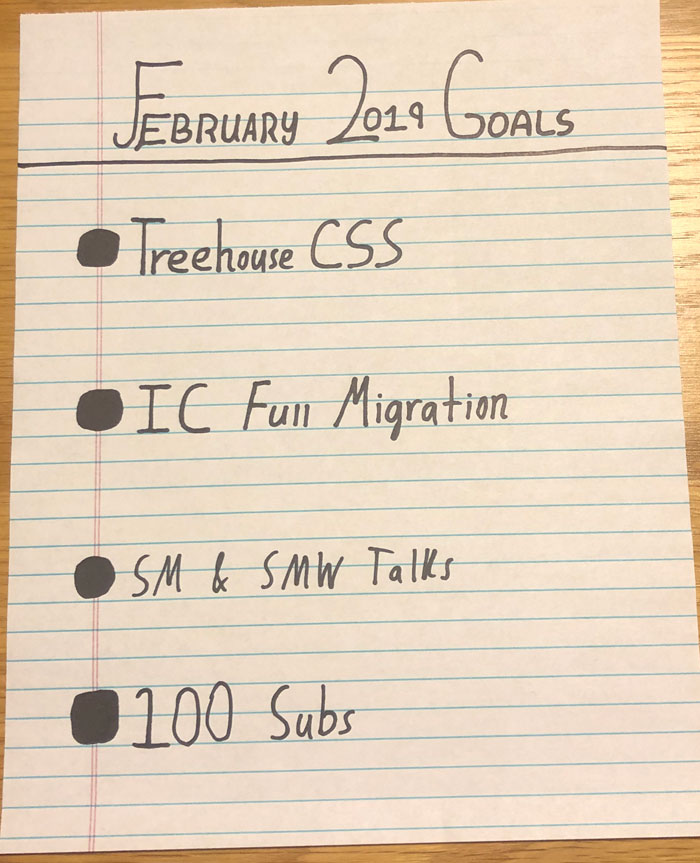 February 2019 Goals
Treehouse CSS
IC Full Migration
SM & SMW Talks
100 Subs